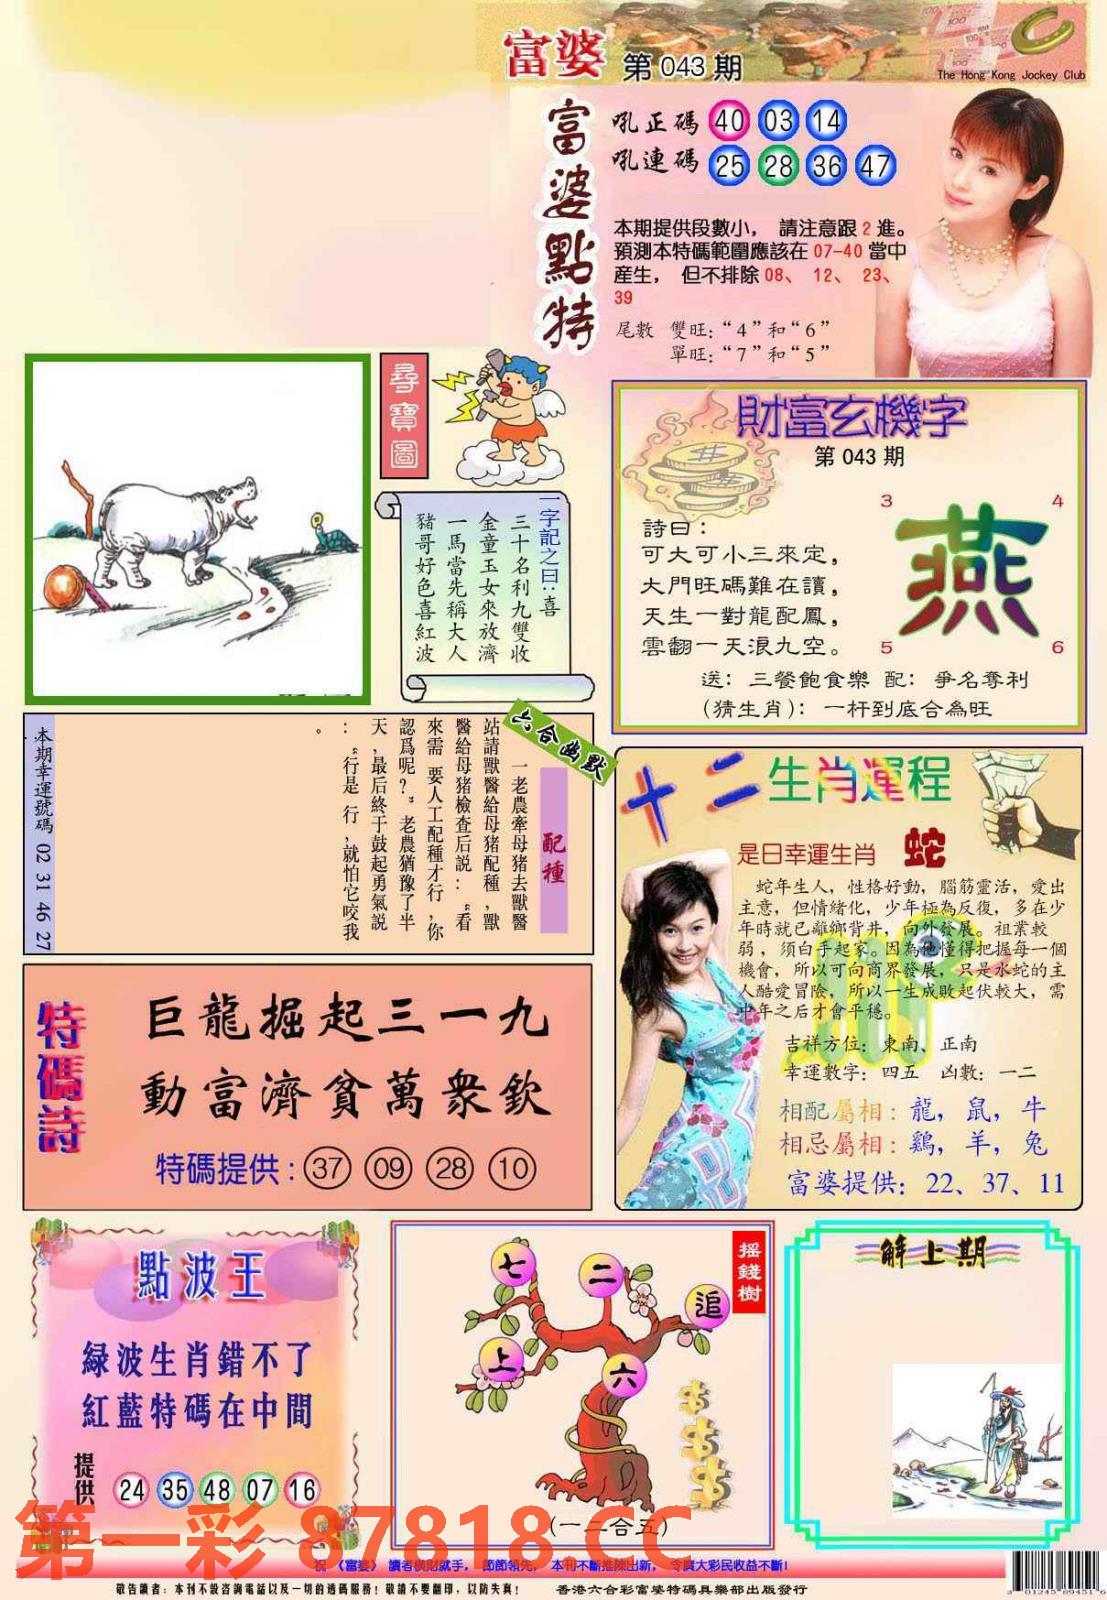 富婆 第 043 期
The Hong Kong Jockey Club
富婆點特
吼正碼 40 03 14
吼連碼 25 28 36 47
本期提供段數小， 請注意跟 2 進。
預測本特碼範圍應該在 07-40 當中
産生， 但不排除 08、 12、 23、
39
尾數 雙旺：“4”和“6”
單旺：“7”和“5”
尋寶圖
一字記之曰：喜
三十名利九雙收
金童玉女來放濟
一馬當先稱大人
豬哥好色喜紅波
財富玄機字
第 043 期
詩曰：
可大可小三來定，
大門旺碼難在讀，
天生一對龍配鳳，
雲翻一天浪九空。
3 4
燕
5 6
送： 三餐飽食樂 配： 爭名奪利
(猜生肖)： 一杆到底合為旺
六合幽默
配種
一老農牽母猪去獸醫
站請獸醫給母猪配種,獸
醫給母猪檢查后説：“看
來需 要人工配種才行,你
認爲呢？”老農猶豫了半
天,最后終于鼓起勇氣説
：“行是 行,就怕它咬我
。
本期幸運號碼 02 31 46 27
十二生肖運程
是日幸運生肖 蛇
蛇年生人，性格好動，腦筋靈活，愛出
主意，但情緒化，少年極為反復，多在少
年時就已離鄉背井，向外發展。祖業較
弱，須白手起家。因為他懂得把握每一個
機會，所以可向商界發展，只是水蛇的主
人酷愛冒險，所以一生成敗起伏較大，需
中年之后才會平穩。
吉祥方位：東南、正南
幸運數字：四五 凶數：一二
相配屬相：龍，鼠，牛
相忌屬相：鷄，羊，兔
富婆提供：22、37、11
特碼詩
巨龍掘起三一九
動富濟貧萬衆欽
特碼提供：37 09 28 10
點波王
緑波生肖錯不了
紅藍特碼在中間
提供 24 35 48 07 16
搖錢樹
七 二 追
上 六
(一二合五)
解上期
第一彩 87818.CC
祝《富婆》 讀者橫財就手， 節節領先， 本刊不斷推陳出新， 令廣大彩民收益不斷！
敬告讀者：本刊不設咨詢電話以及一切的透碼服務！敬請不要翻印，以防失真！ 香港六合彩富婆特碼俱樂部出版發行